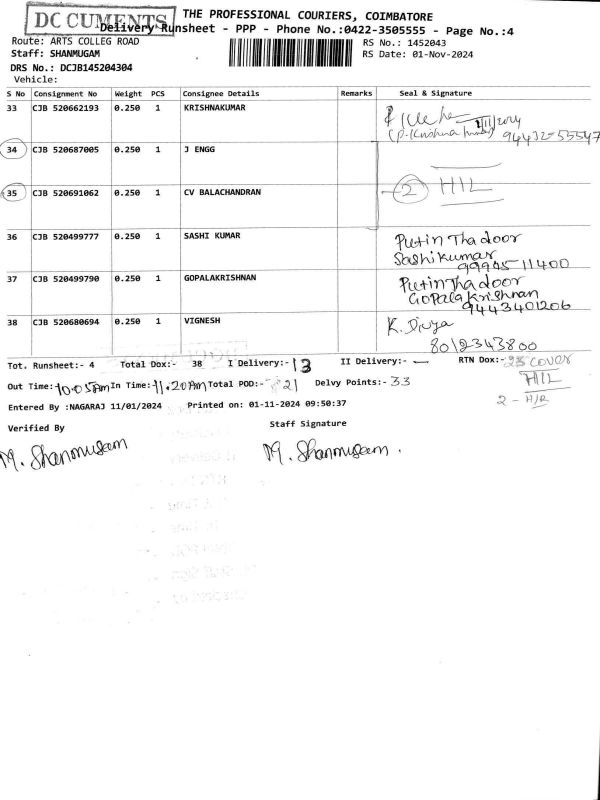 DC CUMENTS
THE PROFESSIONAL COURIERS, COIMBATORE
Delivery Runsheet - PPP - Phone No.:0422-3505555 - Page No.:4
Route: ARTS COLLEG ROAD
RS No.: 1452043
Staff: SHANMUGAM
RS Date: 01-Nov-2024
DRS No.: DCJB145204304
Vehicle:
S No Consignment No Weight PCS Consignee Details Remarks Seal & Signature
33 CJB 520662193 0.250 1 KRISHNAKUMAR
(P. Krishna kumar) 94432-55547
34 CJB 520687005 0.250 1 J ENGG
35 CJB 520691062 0.250 1 CV BALACHANDRAN
2 HIL
36 CJB 520499777 0.250 1 SASHI KUMAR
Putin Thadoor
Sashikumar
99945-11400
37 CJB 520499790 0.250 1 GOPALAKRISHNAN
Putin Thadoor
Gopalakrishnan
9443401206
38 CJB 520680694 0.250 1 VIGNESH
K. Divya
8012343800
Tot. Runsheet:- 4 Total Dox:- 38 I Delivery:- 13 II Delivery:- — RTN Dox:- 23 cover
HIL
Out Time: 10.05am In Time: 11.20Am Total POD:- 21 Delvy Points:- 33
2 - H/R
Entered By :NAGARAJ 11/01/2024 Printed on: 01-11-2024 09:50:37
Verified By
Staff Signature
M. Shanmugam
M. Shanmugam.